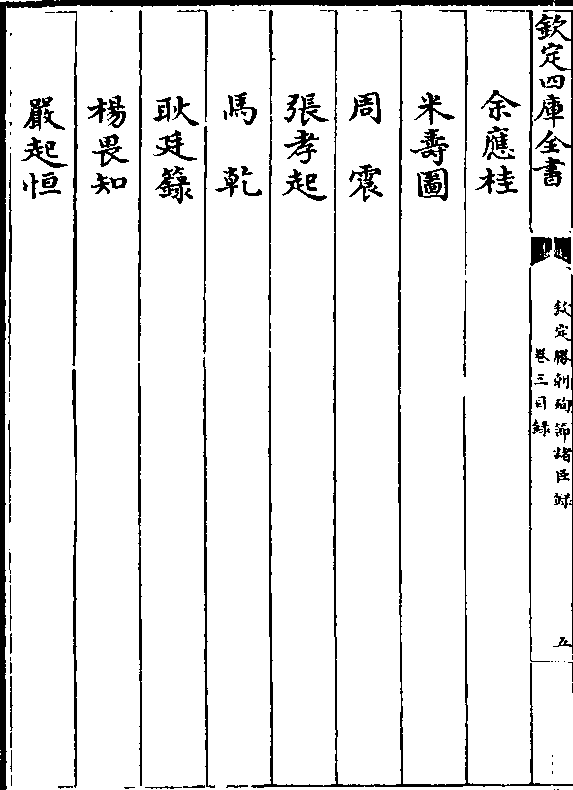 欽定四庫全書
欽定勝朝殉節諸臣録
卷三目録
五
余應桂
米壽圖
周震
張孝起
馬乾
耿廷籙
楊畏知
嚴起恒